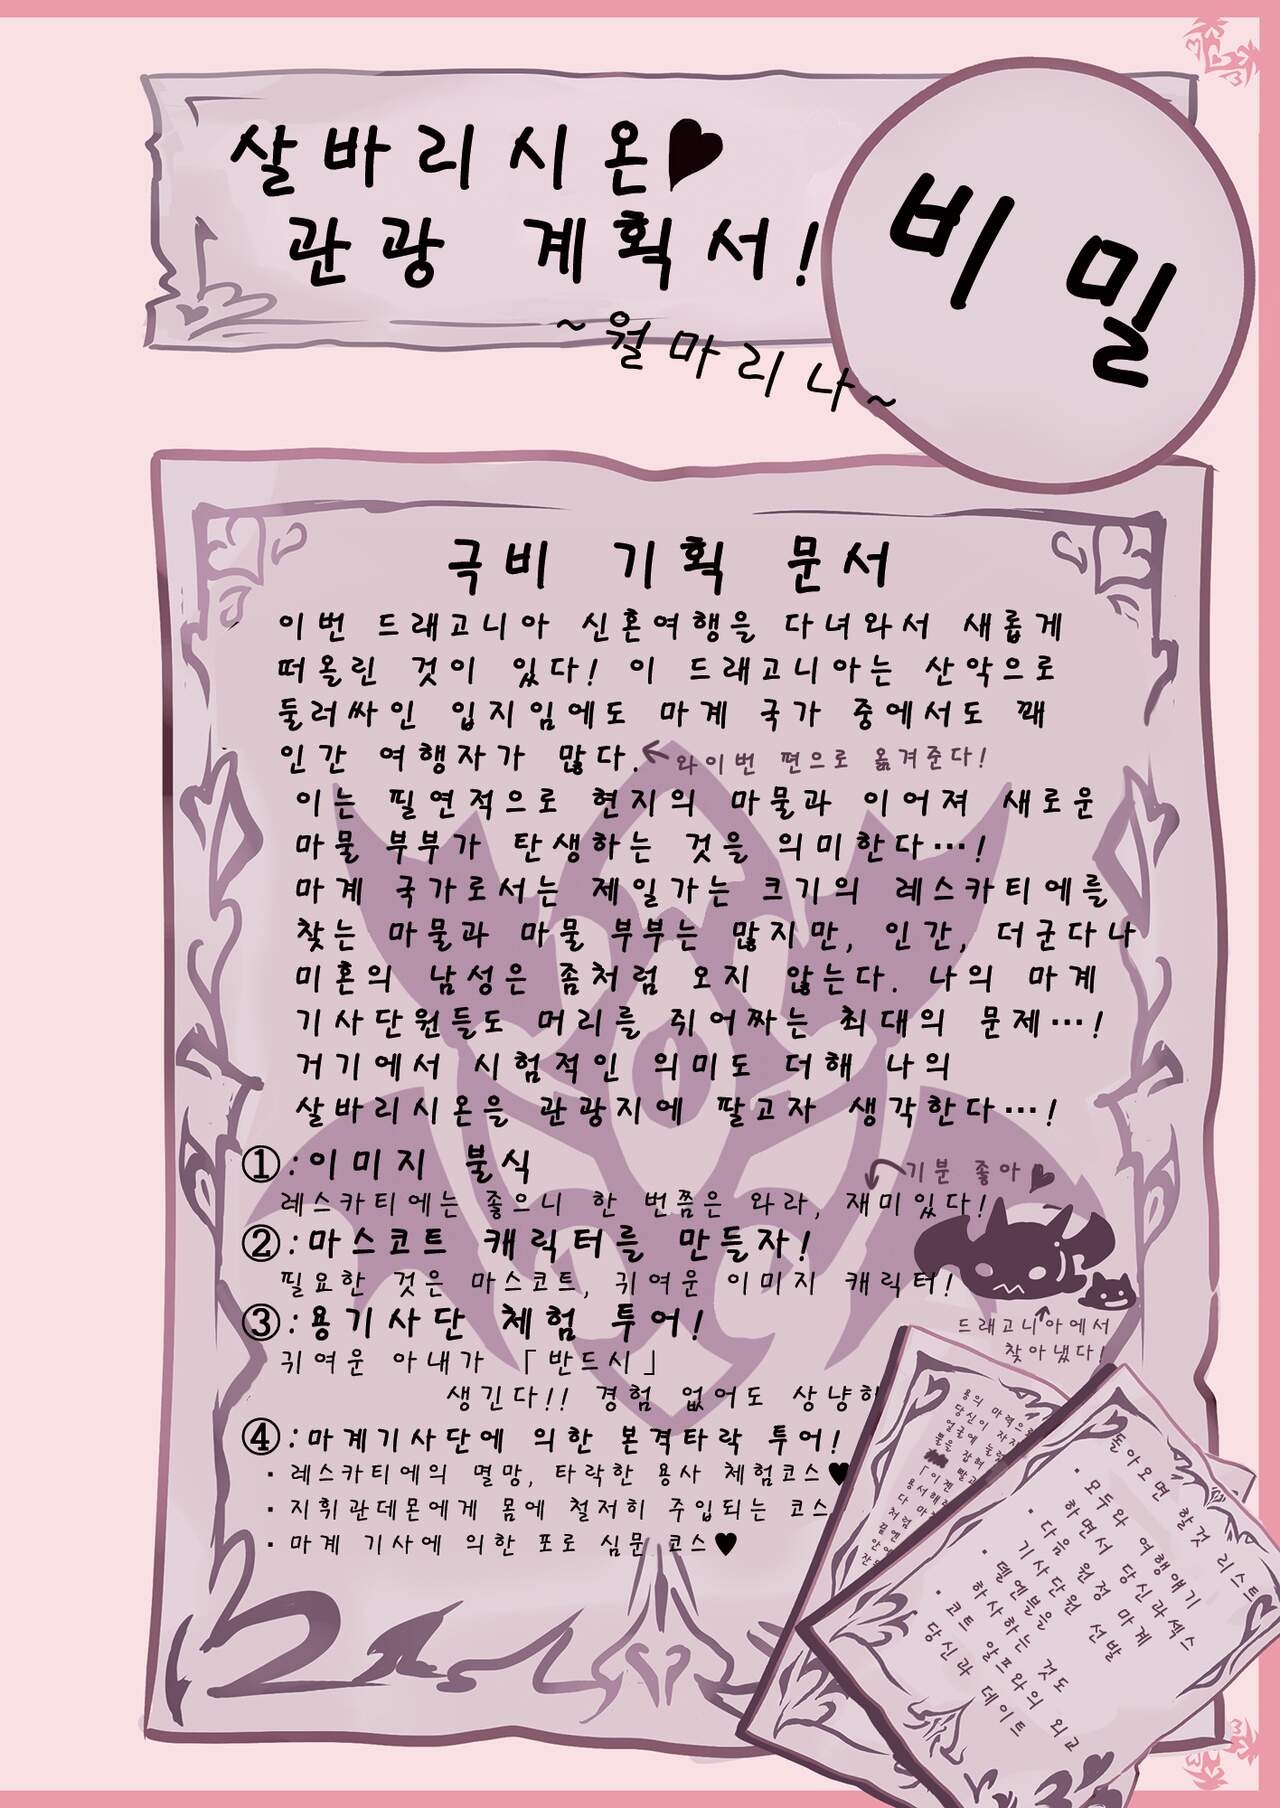 살바리시온♥
관광 계획서!
비밀
~윌마리나~
극비 기획 문서
이번 드래고니아 신혼여행을 다녀와서 새롭게
떠올린 것이 있다! 이 드래고니아는 산악으로
둘러싸인 입지임에도 마계 국가 중에서도 꽤
인간 여행자가 많다.
와이번 편으로 옮겨준다!
이는 필연적으로 현지의 마물과 이어져 새로운
마물 부부가 탄생하는 것을 의미한다…!
마계 국가로서는 제일가는 크기의 레스카티에를
찾는 마물과 마물 부부는 많지만, 인간, 더군다나
미혼의 남성은 좀처럼 오지 않는다. 나의 마계
기사단원들도 머리를 쥐어짜는 최대의 문제…!
거기에서 시험적인 의미도 더해 나의
살바리시온을 관광지에 팔고자 생각한다…!
①:이미지 불식
기분 좋아♥
레스카티에는 좋으니 한 번쯤은 와라, 재미있다!
②:마스코트 캐릭터를 만들자!
필요한 것은 마스코트, 귀여운 이미지 캐릭터!
드래고니아에서
찾아냈다!
③:용기사단 체험 투어!
귀여운 아내가 「반드시」
생긴다!! 경험 없어도 상냥하
④:마계기사단에 의한 본격타락 투어!
・레스카티에의 멸망, 타락한 용사 체험코스♥
・지휘관데몬에게 몸에 철저히 주입되는 코스
・마계 기사에 의한 포로 심문 코스♥
용의 마력으
당신이 자지
얼굴에 눌
돌아오면 할것 리스트
・모두와 여행얘기
하면서 당신과섹스
・다음 원정 마계
기사단원 선발
・델엔블을
하사하는 것도
・코트 알프와의 외교
당신과 데이트